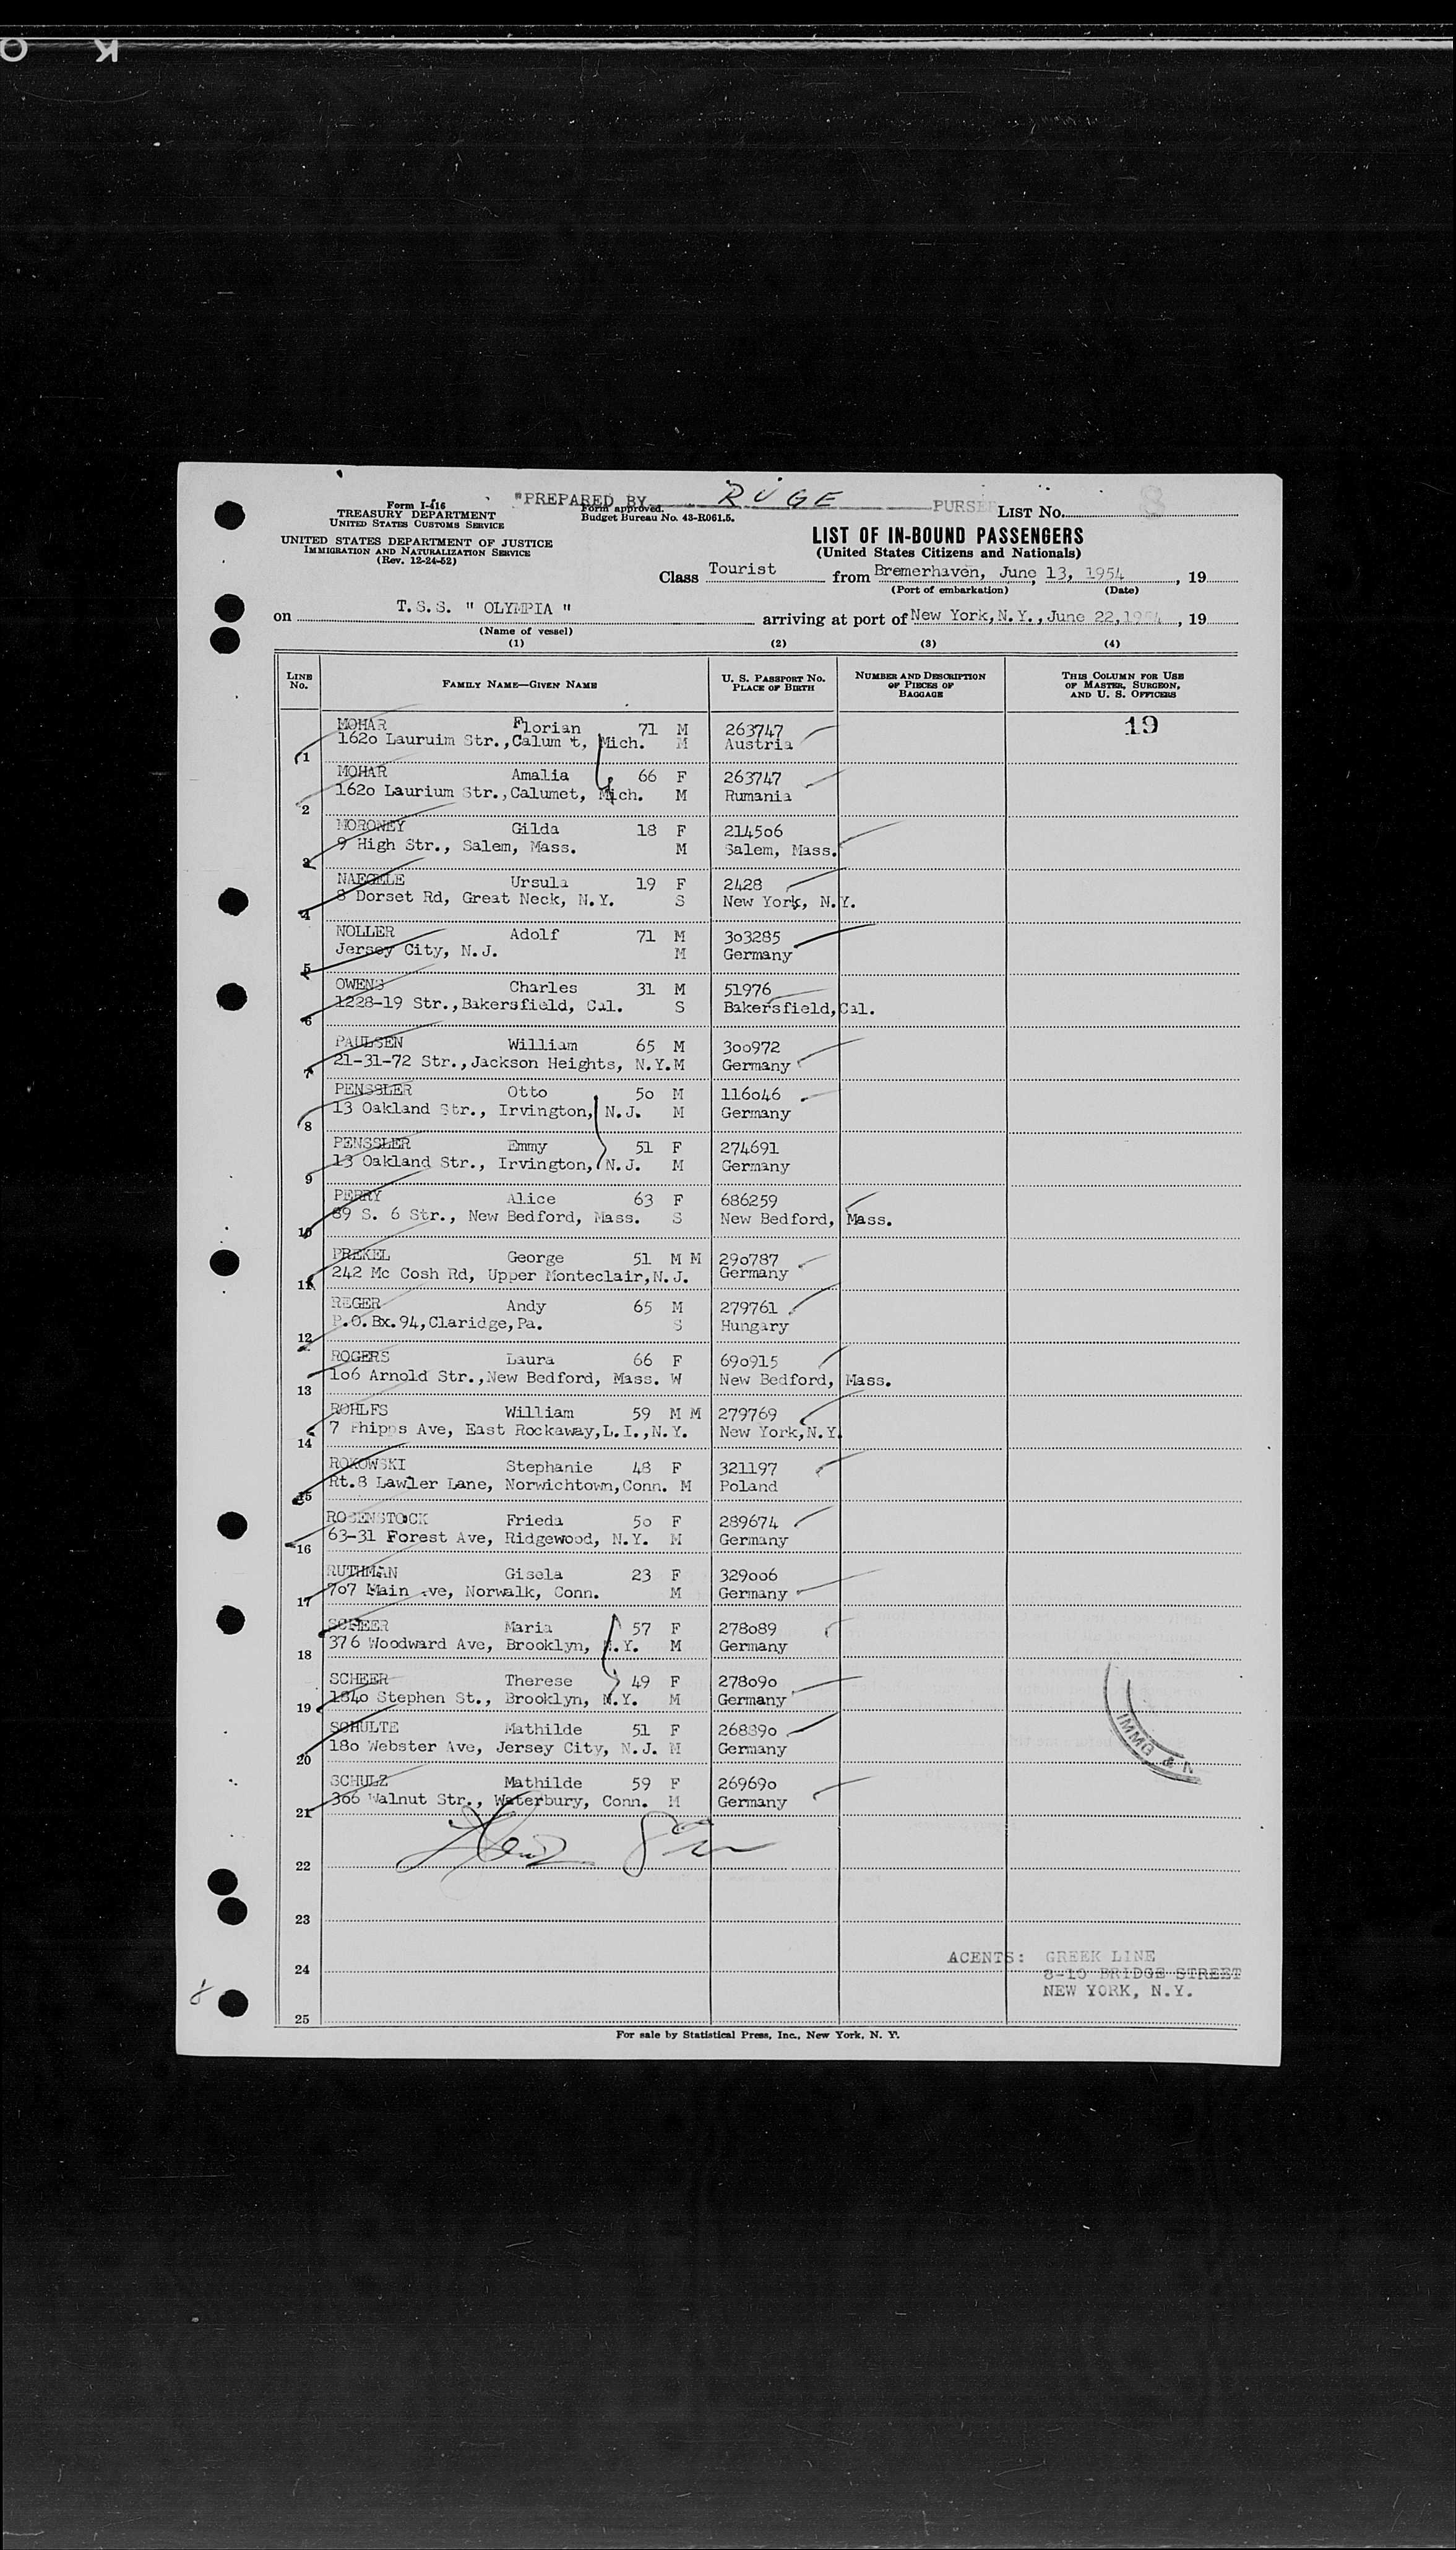 O K
"PREPARED BY RÜGE PURSER LIST No. 8
Form I-416
TREASURY DEPARTMENT
UNITED STATES CUSTOMS SERVICE
Form approved.
Budget Bureau No. 43-R061.5.
UNITED STATES DEPARTMENT OF JUSTICE
IMMIGRATION AND NATURALIZATION SERVICE
(Rev. 12-24-52)
LIST OF IN-BOUND PASSENGERS
(United States Citizens and Nationals)
Class Tourist from Bremerhaven, June 13, 1954, 19
(Port of embarkation) (Date)
on T.S.S. " OLYMPIA " arriving at port of New York, N.Y., June 22,1954, 19
(Name of vessel)
(1) (2) (3) (4)
LINE No. FAMILY NAME—GIVEN NAME U. S. PASSPORT No. PLACE OF BIRTH NUMBER AND DESCRIPTION OF PIECES OF BAGGAGE THIS COLUMN FOR USE OF MASTER, SURGEON, AND U. S. OFFICERS
MOHAR Florian 71 M 263747 19
1 162o Lauruim Str.,Calum t, Mich. M Austria
MOHAR Amalia 66 F 263747
2 162o Laurium Str.,Calumet, Mich. M Rumania
MORONEY Gilda 18 F 2145o6
3 9 High Str., Salem, Mass. M Salem, Mass.
NAEGELE Ursula 19 F 2428
4 8 Dorset Rd, Great Neck, N.Y. S New York, N.Y.
NOLLER Adolf 71 M 3o3285
5 Jersey City, N.J. M Germany
OWENS Charles 31 M 51976
6 1228-19 Str.,Bakersfield, Cal. S Bakersfield,Cal.
PAULSEN William 65 M 3oo972
7 21-31-72 Str.,Jackson Heights, N.Y.M Germany
PENSSLER Otto 5o M 116o46
8 13 Oakland Str., Irvington, N.J. M Germany
PENSSLER Emmy 51 F 274691
9 13 Oakland Str., Irvington, N.J. M Germany
PERRY Alice 63 F 686259
10 89 S. 6 Str., New Bedford, Mass. S New Bedford, Mass.
PREKEL George 51 M M 29o787
11 242 Mc Cosh Rd, Upper Monteclair,N.J. Germany
REGER Andy 65 M 279761
12 P.O.Bx.94,Claridge,Pa. S Hungary
ROGERS Laura 66 F 69o915
13 1o6 Arnold Str.,New Bedford, Mass. W New Bedford, Mass.
ROHLFS William 59 M M 279769
14 7 Phipps Ave, East Rockaway,L.I.,N.Y. New York,N.Y.
ROKOWSKI Stephanie 48 F 321197
15 Rt.8 Lawler Lane, Norwichtown,Conn. M Poland
ROSENSTOCK Frieda 5o F 289674
16 63-31 Forest Ave, Ridgewood, N.Y. M Germany
RUTHMAN Gisela 23 F 329oo6
17 7o7 Main ve, Norwalk, Conn. M Germany
SCHEER Maria 57 F 278o89
18 376 Woodward Ave, Brooklyn, N.Y. M Germany
SCHEER Therese 49 F 278o9o
19 184o Stephen St., Brooklyn, N.Y. M Germany
SCHULTE Mathilde 51 F 26889o
20 18o Webster Ave, Jersey City, N.J. M Germany
SCHULZ Mathilde 59 F 26969o
21 3o6 Walnut Str., Waterbury, Conn. M Germany
IMMG & N
22
23
24
25
AGENTS: GREEK LINE
8-10 BRIDGE STREET
NEW YORK, N.Y.
8
For sale by Statistical Press, Inc., New York, N. Y.